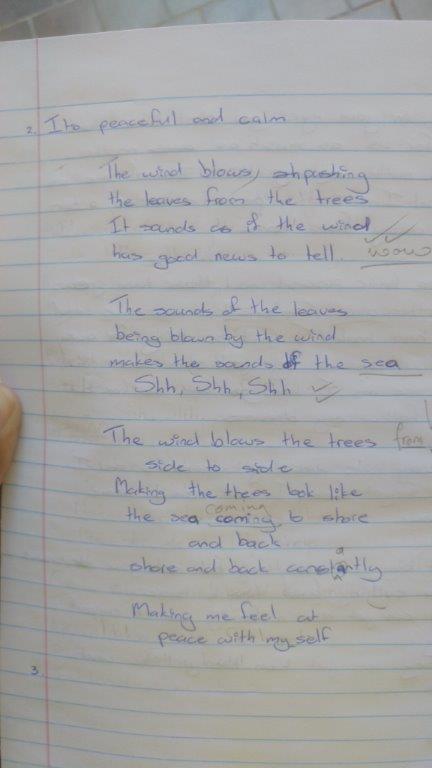 2. Its peaceful and calm
The wind blows, pushing
the leaves from the trees
It sounds as if the wind
has good news to tell. wow
The sounds of the leaves
being blown by the wind
makes the sounds of the sea
Shh, Shh, Shh
The wind blows the trees from
side to side
Making the trees look like
coming
the sea coming to shore
and back
shore and back constantly
Making me feel at
peace with my self
3.